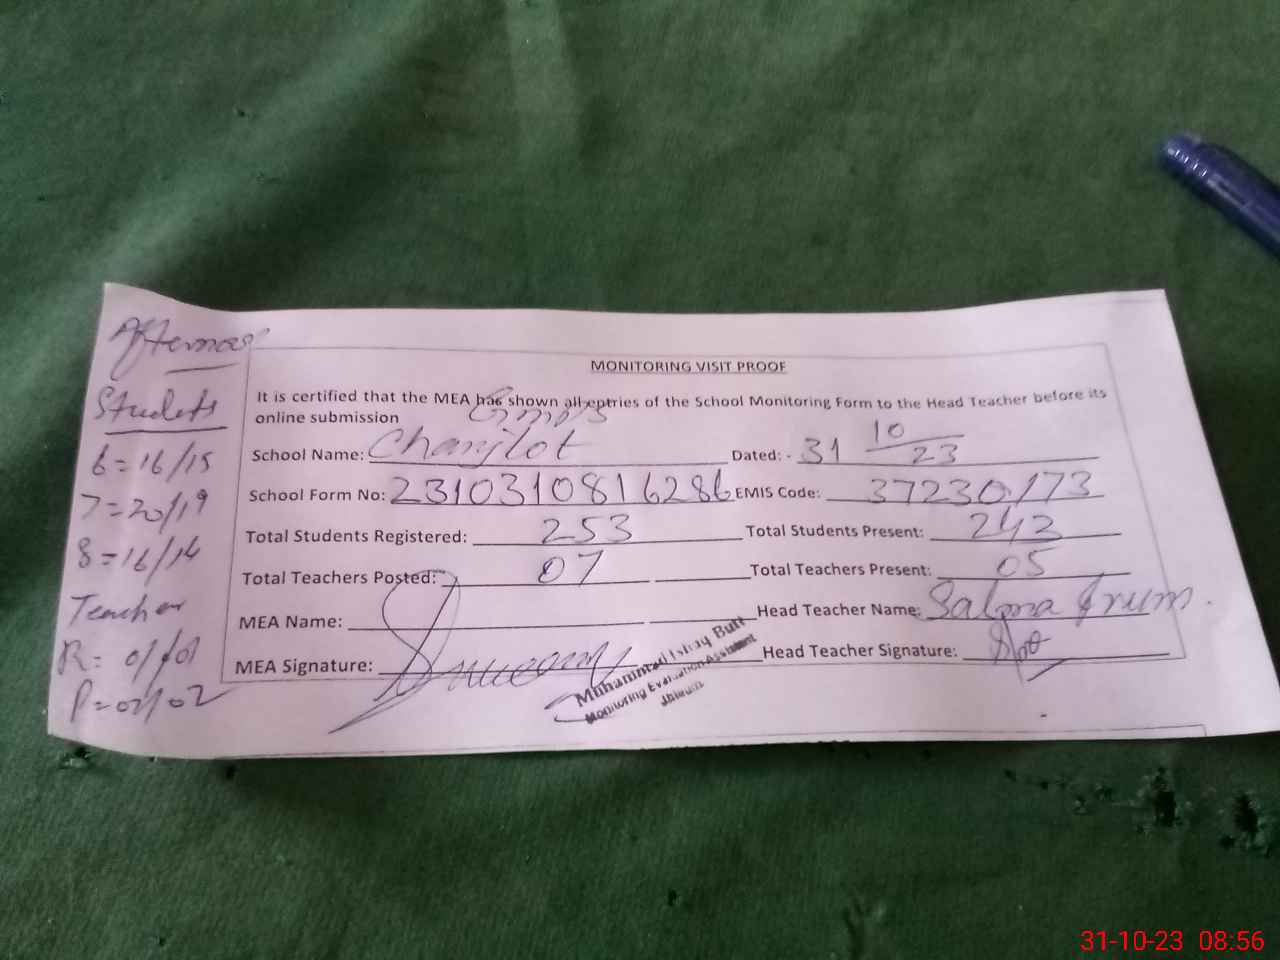 Afternoon
Students
6 = 16/15
7 = 20/19
8 = 16/14
Teacher
R = 01/01
P = 02/02
MONITORING VISIT PROOF
It is certified that the MEA has shown all eptries of the School Monitoring Form to the Head Teacher before its
online submission
School Name: Chanjlot Dated: - 31 10/23
School Form No: 2310310816286 EMIS Code: 37230173
Total Students Registered: 253 Total Students Present: 242
Total Teachers Posted: 07 Total Teachers Present: 05
MEA Name: Head Teacher Name: Salma Irum.
MEA Signature: Head Teacher Signature:
Muhammad Ishaq Butt
Monitoring Evaluation Assistant
Jhelum
31-10-23 08:56